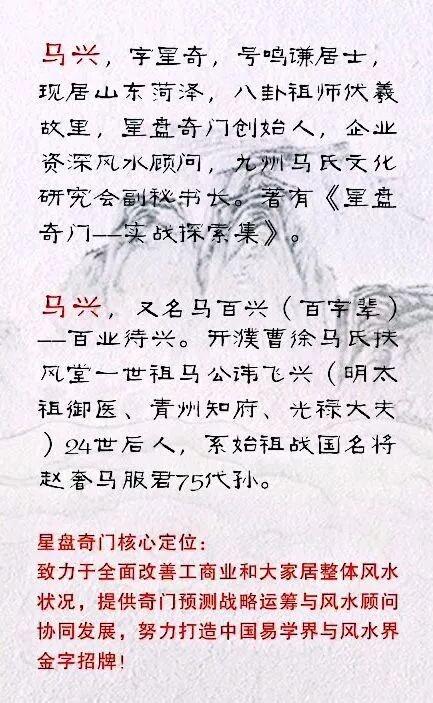 马兴，字星奇，号鸣谦居士，
现居山东菏泽，八卦祖师伏羲
故里，星盘奇门创始人，企业
资深风水顾问，九州马氏文化
研究会副秘书长。著有《星盘
奇门—实战探索集》。
马兴，又名马百兴（百字辈）
—百业待兴。开濮曹徐马氏扶
风堂一世祖马公讳飞兴（明太
祖御医、青州知府、光禄大夫
）24世后人，系始祖战国名将
赵奢马服君75代孙。
星盘奇门核心定位：
致力于全面改善工商业和大家居整体风水
状况，提供奇门预测战略运筹与风水顾问
协同发展，努力打造中国易学界与风水界
金字招牌！